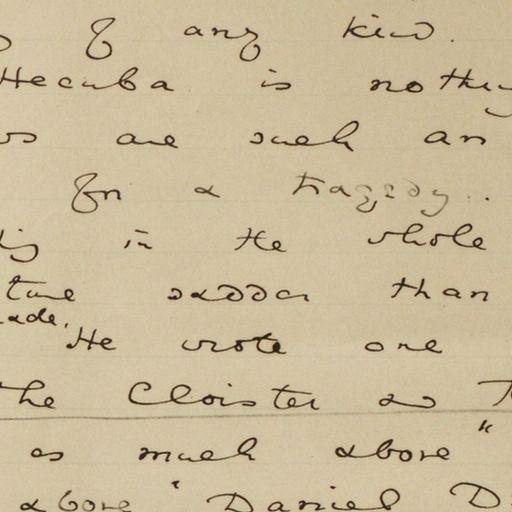 of any kind.
Hecuba is nothing
are such an
for a tragedy..
in the whole
sadder than
ade.
He wrote one
the Cloister and
as much above "
above " Daniel D